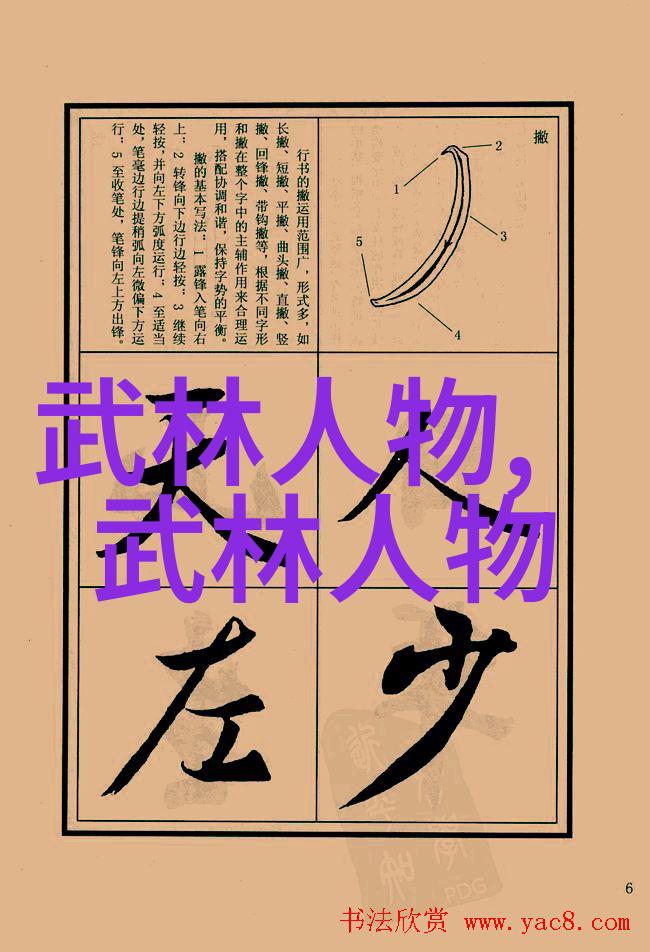 撇
1
2
3
4
5
行书的撇运用范围广，形式多，如
长撇、短撇、平撇、曲头撇、直撇、竖
撇、回锋撇、带钩撇等，根据不同字形
和撇在整个字中的主辅作用来合理运
用，搭配协调和谐，保持字势的平衡。
撇的基本写法：1 露锋入笔向右
上；2 转锋向下边行边轻按；3 继续
轻按，并向左下方弧度运行；4 至适当
处，笔毫边行边提稍弧向左微偏下方运
行；5 至收笔处，笔锋向左上方出锋。
武林人物,
武林人物
人
天
少
左
PDG
6
书法欣赏 www.yac8.com